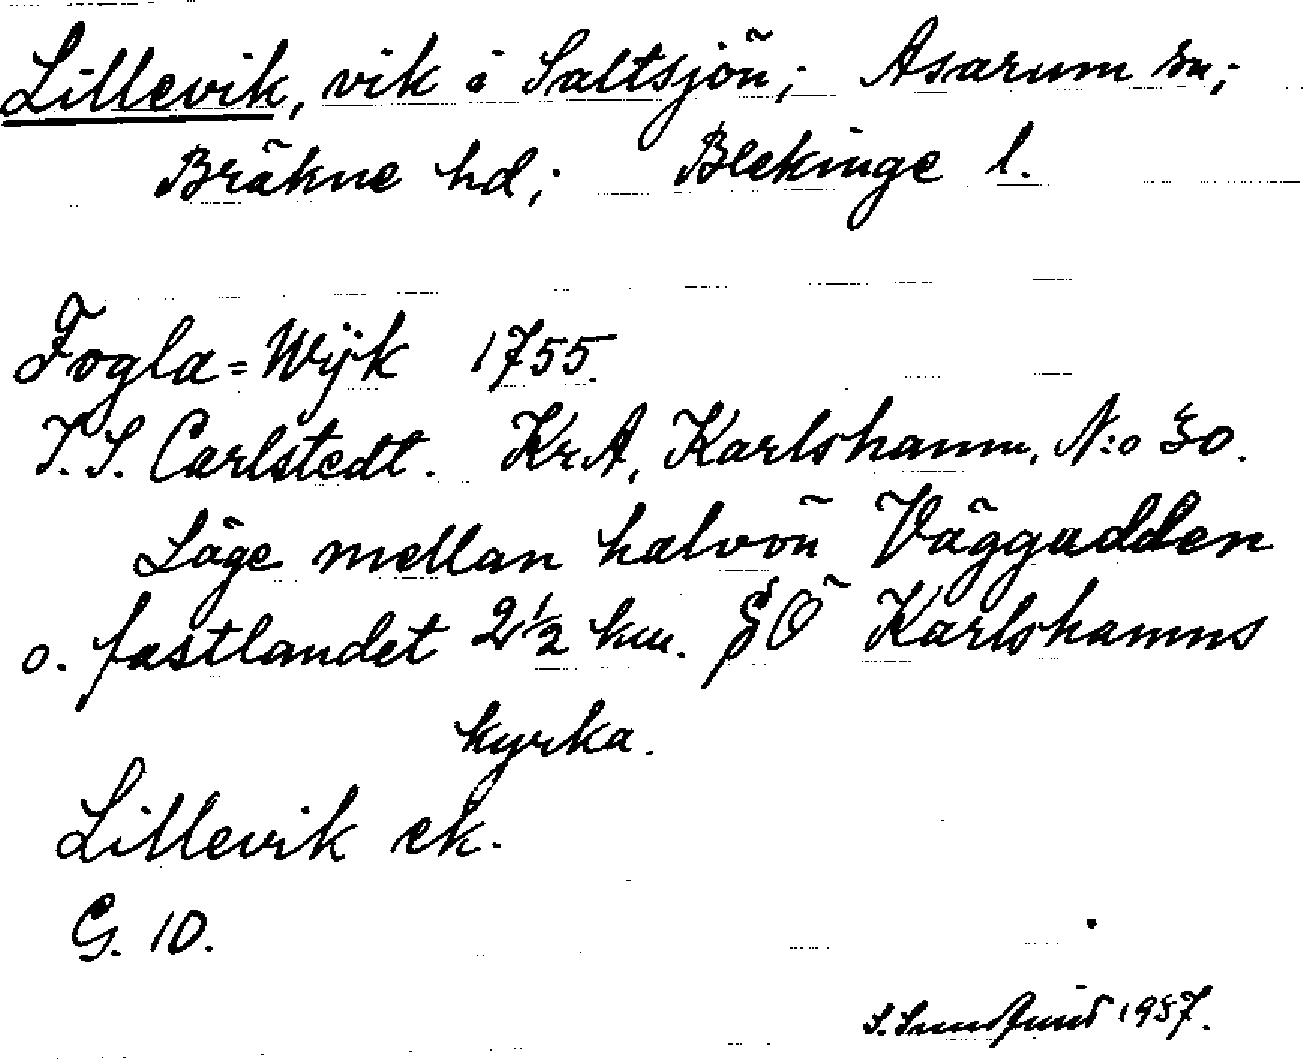 Lillevik, vik i Saltsjön; Asarum sn;
Bräkne hd; Blekinge l.
Fogla=Wijk 1755.
J. S. Carlstedt. KrA, Karlshamn, N:o 30.
Läge mellan halvön Väggadden
o. fastlandet 2½ km. SÖ Karlshamns
kyrka.
Lillevik ek.
G. 10.
1937.